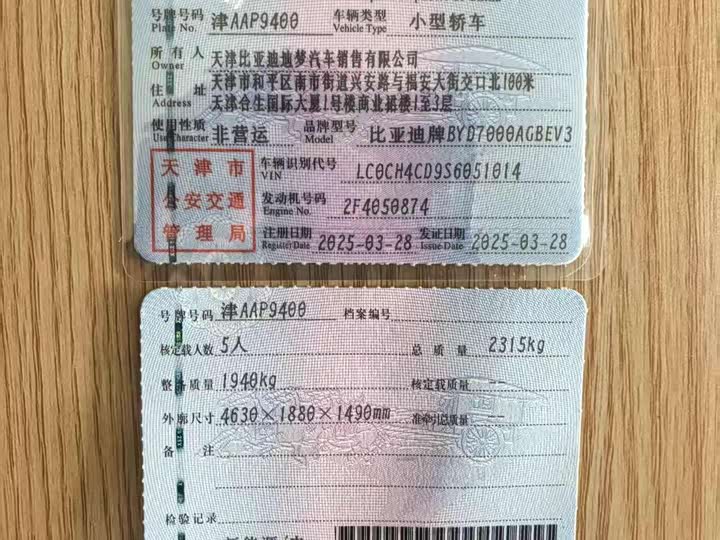 号牌号码 津AAP9400 车辆类型 小型轿车
Plate No. Vehicle Type
所有人 天津比亚迪地梦汽车销售有限公司
Owner
住址 天津市和平区南市街道兴安路与福安大街交口北100米
Address 天津合生国际大厦1号楼商业裙楼1至3层
使用性质 非营运 品牌型号 比亚迪牌BYD7000AGBEV3
Use Character Model
天津市
公安交通
管理局
车辆识别代号 LC0CH4CD9S6051014
VIN
发动机号码 2F4050874
Engine No.
注册日期 2025-03-28 发证日期 2025-03-28
Register Date Issue Date
号牌号码 津AAP9400 档案编号
核定载人数 5人 总质量 2315kg
整备质量 1940kg 核定载质量 --
外廓尺寸 4630×1880×1490mm 准牵引总质量 --
备注
检验记录